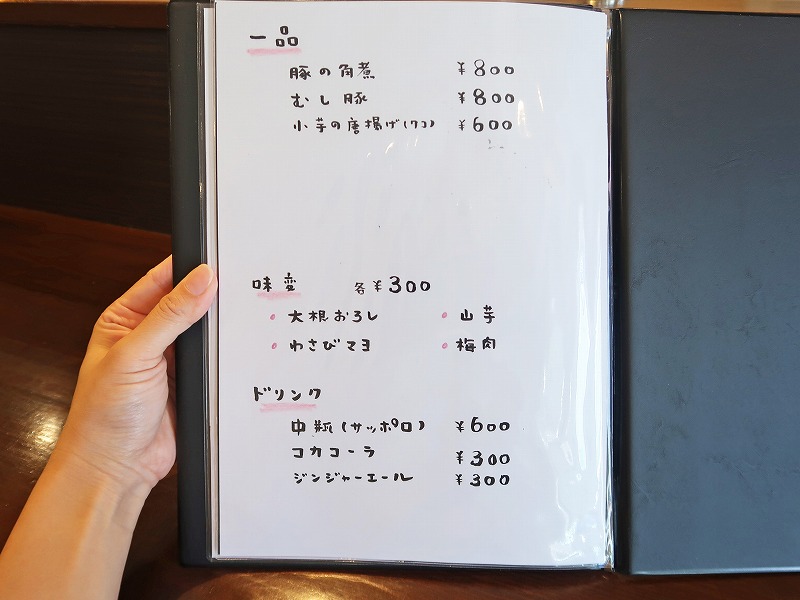 一品
豚の角煮 ¥800
むし豚 ¥800
小芋の唐揚げ(7コ) ¥600
味変 各¥300
大根おろし 山芋
わさびマヨ 梅肉
ドリンク
中瓶(サッポロ) ¥600
コカコーラ ¥300
ジンジャーエール ¥300